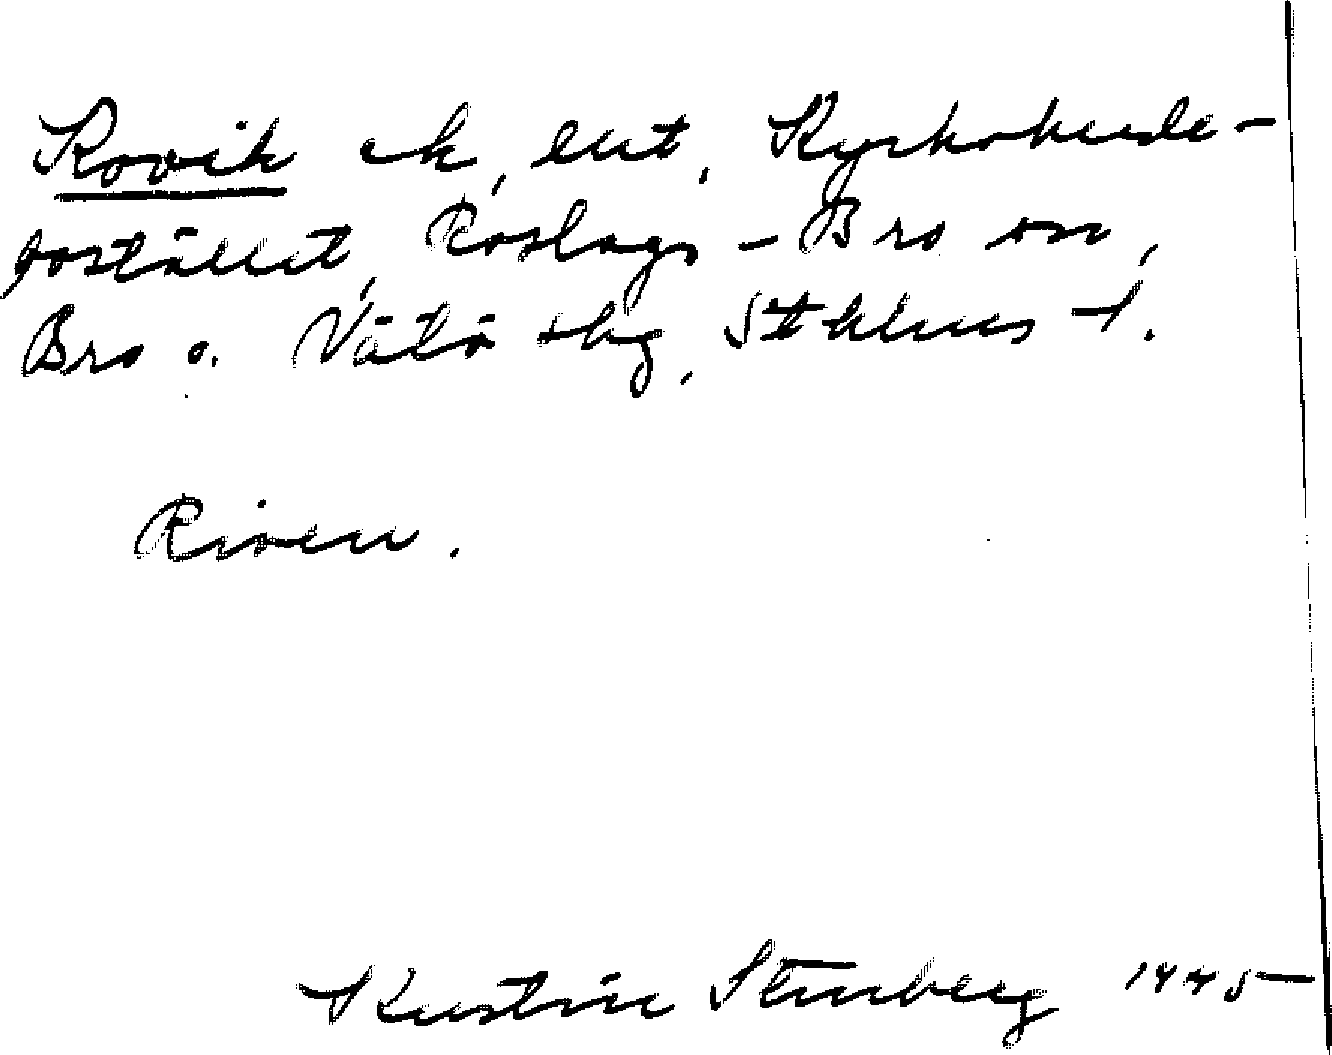 Kovik ek, lht, Kyrkoherde-
bostället, Roslags-Bro sn,
Bro o. Vätö skg, Sthlms l.
Riven.
Kerstin Stenberg 1945